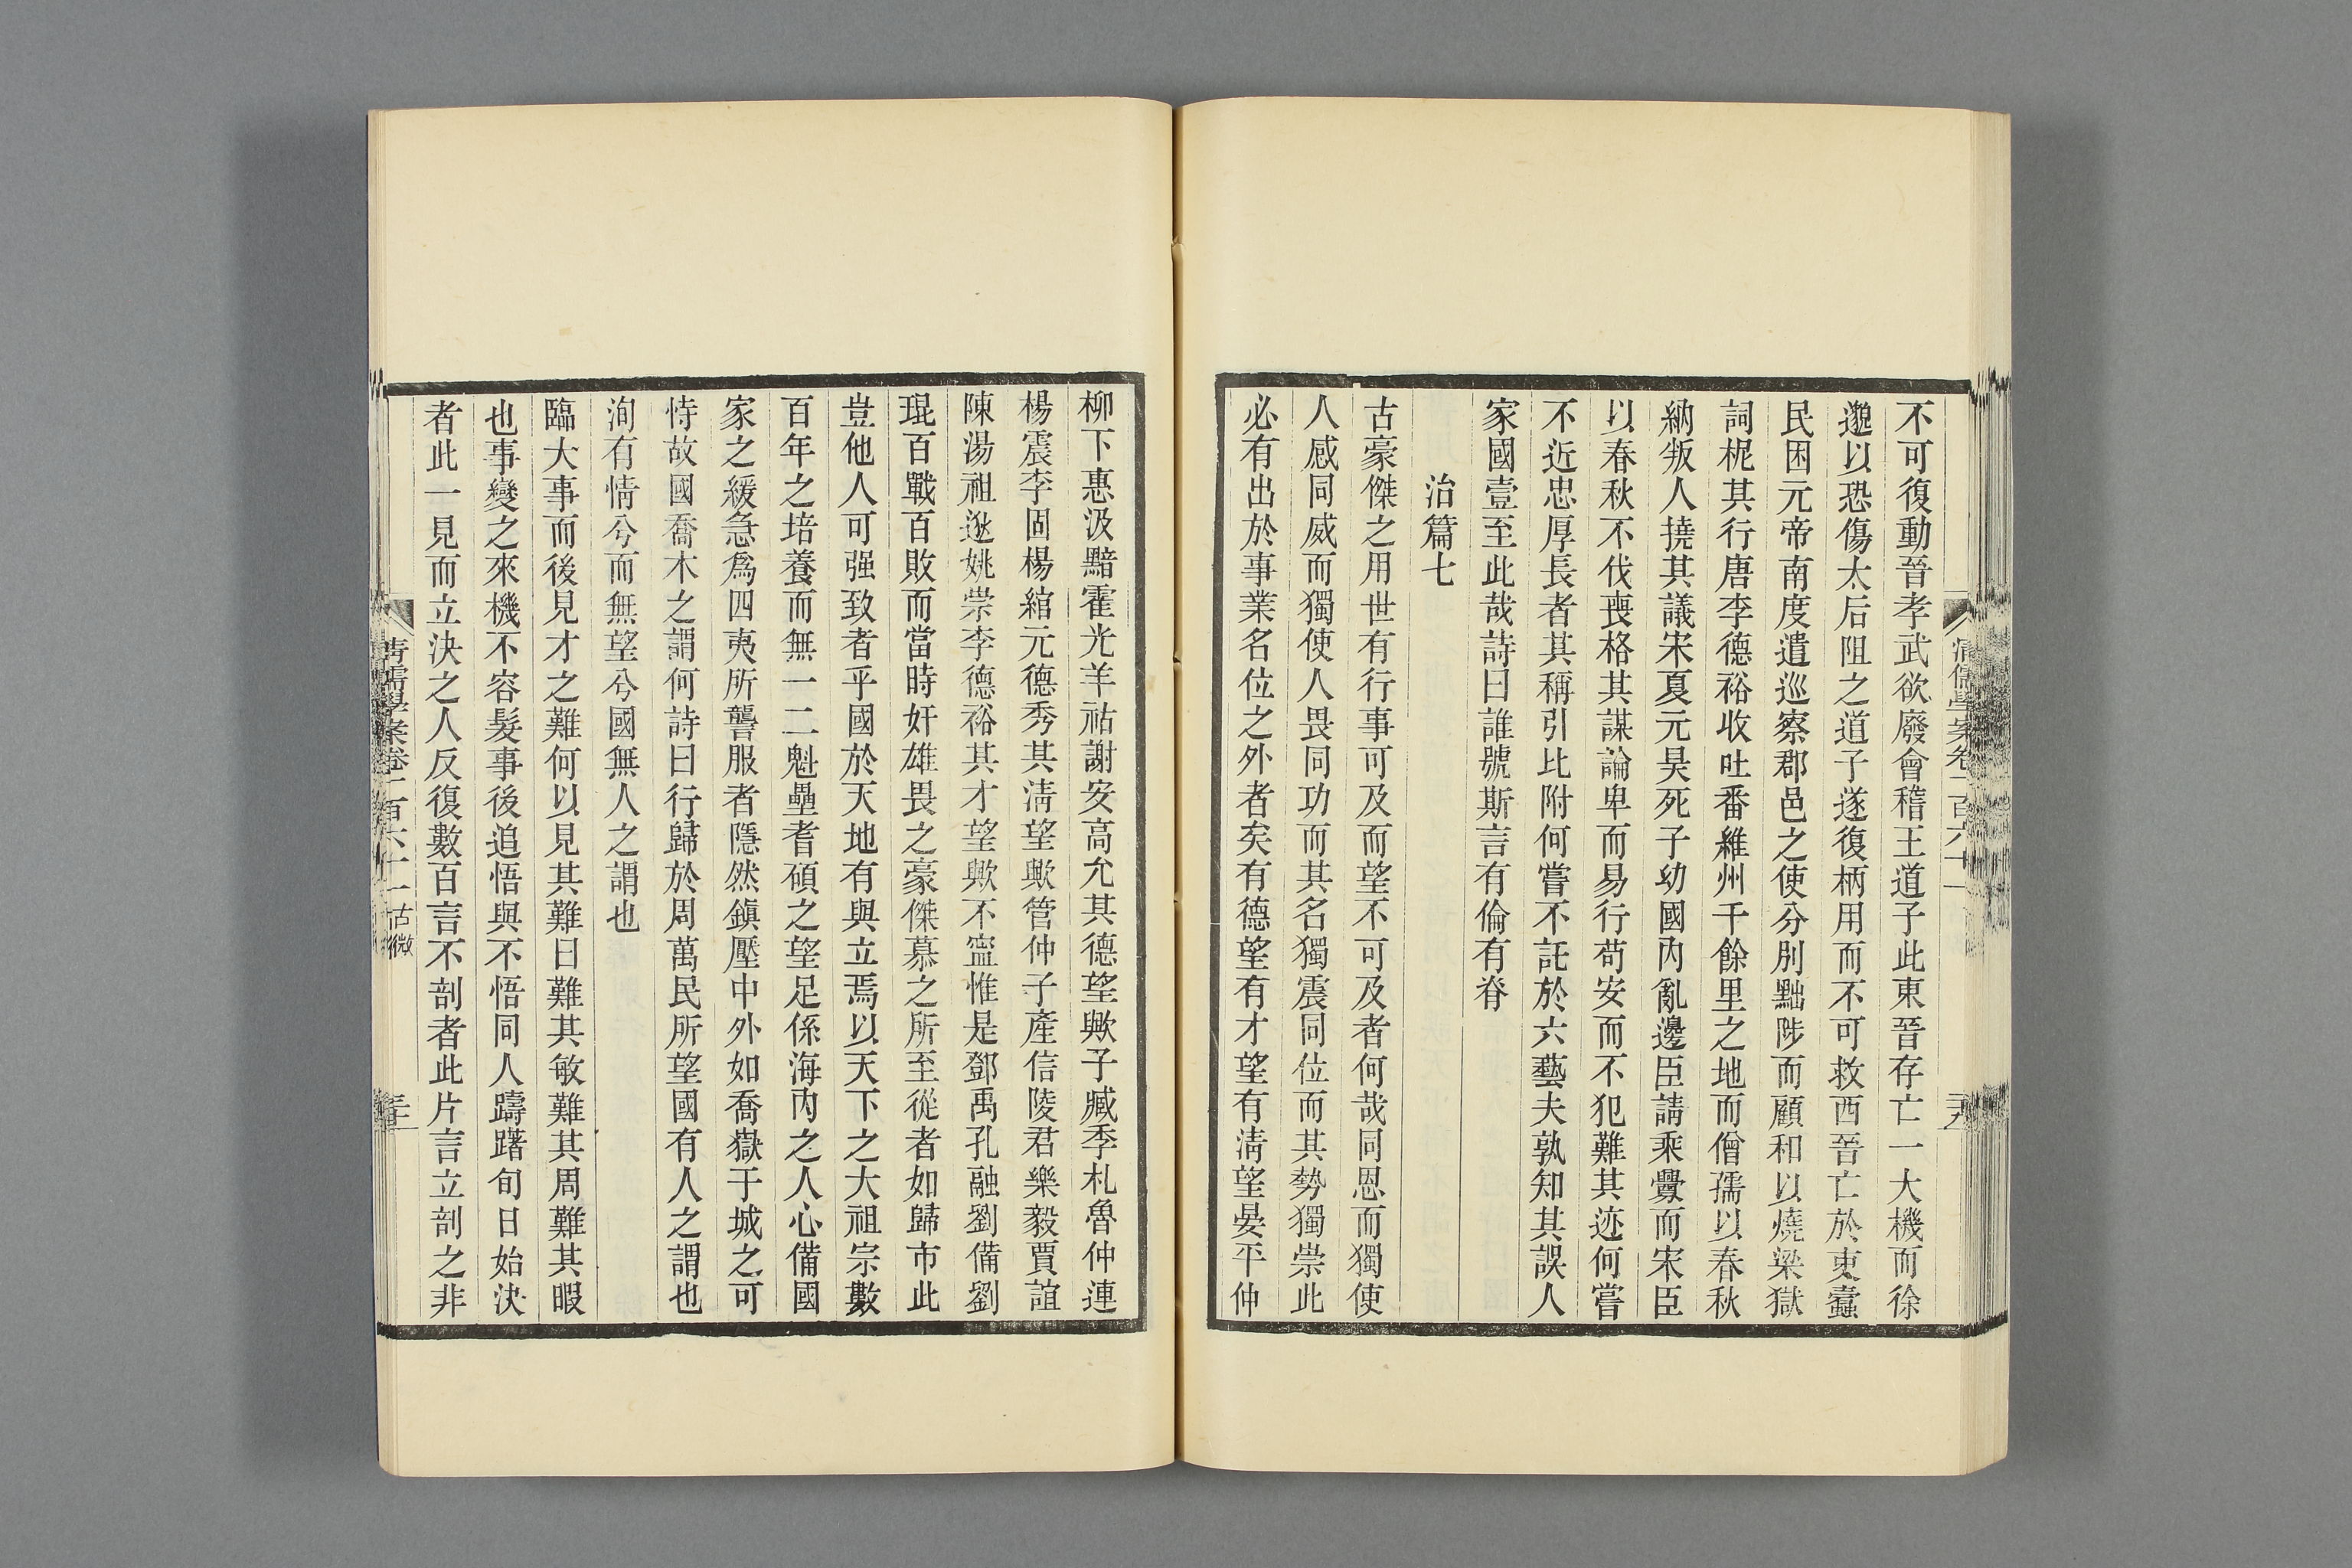 不可復動晉孝武欲廢會稽王道子此東晉存亡一大機而徐
邈以恐傷太后阻之道子遂復柄用而不可救西晉亡於東蠹
民困元帝南度遣巡察郡邑之使分別黜陟而顧和以燒梁獄
詞柅其行唐李德裕收吐番維州千餘里之地而僧孺以春秋
納叛人撓其議宋夏元昊死子幼國內亂邊臣請乘釁而宋臣
以春秋不伐喪格其謀論卑而易行苟安而不犯難其迹何嘗
不近忠厚長者其稱引比附何嘗不託於六藝夫孰知其誤人
家國壹至此哉詩曰誰號斯言有倫有脊
治篇七
古豪傑之用世有行事可及而望不可及者何哉同恩而獨使
人感同威而獨使人畏同功而其名獨震同位而其勢獨崇此
必有出於事業名位之外者矣有德望有才望有清望晏平仲
柳下惠汲黯霍光羊祜謝安高允其德望歟子臧季札魯仲連
楊震李固楊綰元德秀其清望歟管仲子產信陵君樂毅賈誼
陳湯祖逖姚崇李德裕其才望歟不寧惟是鄧禹孔融劉備劉
琨百戰百敗而當時奸雄畏之豪傑慕之所至從者如歸市此
豈他人可强致者乎國於天地有與立焉以天下之大祖宗數
百年之培養而無一二魁壘耆碩之望足係海內之人心備國
家之緩急爲四夷所讋服者隱然鎮壓中外如喬嶽干城之可
恃故國喬木之謂何詩曰行歸於周萬民所望國有人之謂也
洵有情兮而無望兮國無人之謂也
臨大事而後見才之難何以見其難曰難其敏難其周難其暇
也事變之來機不容髮事後追悟與不悟同人躊躇旬日始決
者此一見而立決之人反復數百言不剖者此片言立剖之非
清儒學案卷一百六十一 古微